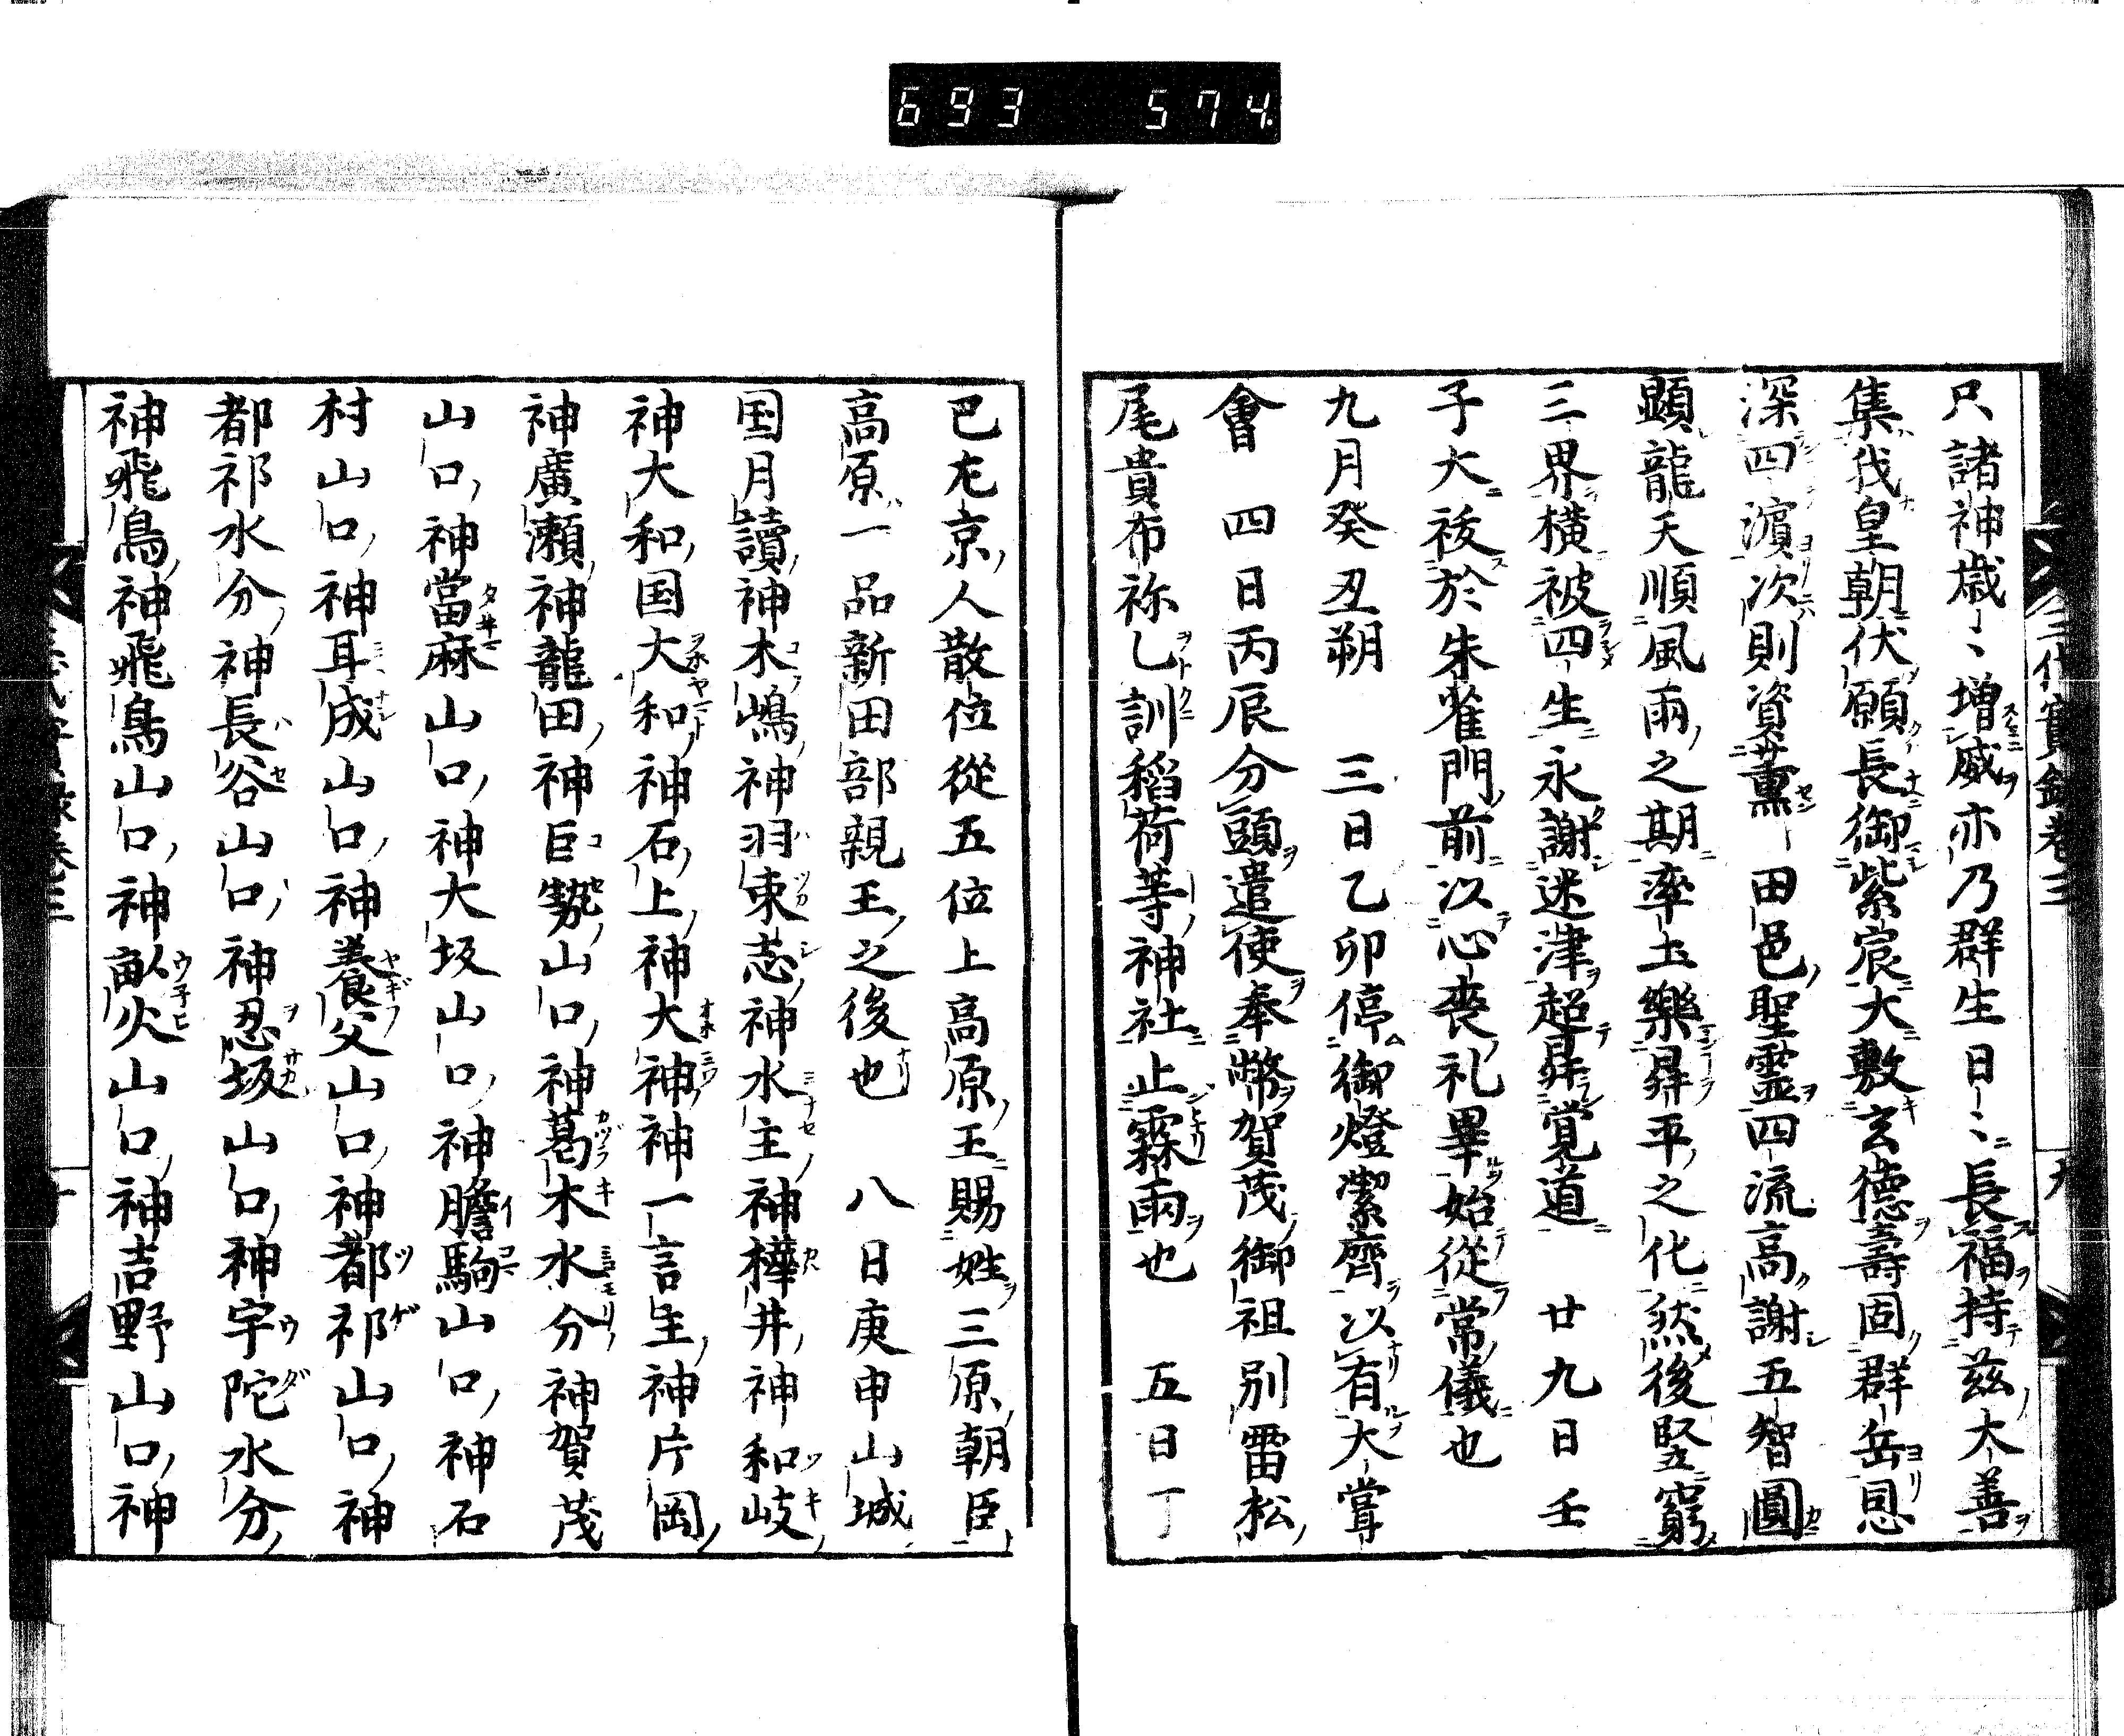 693 574
三代實錄卷三
九
只諸神歳〻増威亦乃群生日〻長福持茲大善
集我皇朝伏願長御紫宸大敷玄德壽固群岳恩
深四濵次則資薫田邑聖霊四流高謝五智圓
顕龍天順風雨之期率土樂昇平之化然後竪窮
三界横被四生永謝迷津超昇覚道　廿九日壬
子大祓於朱雀門前以心喪礼畢始從常儀也
九月癸丑朔　三日乙卯停御燈潔齊以有大嘗
會　四日丙辰分頭遣使奉幣賀茂御祖別雷松
尾貴布祢乙訓稻荷等神社止霖雨也　五日丁
巳左京人散位從五位上高原王賜姓三原朝臣
高原一品新田部親王之後也　八日庚申山城
国月讀神木嶋神羽束志神水主神樺井神和岐
神大和国大和神石上神大神神一言主神片岡
神廣瀬神龍田神巨勢山口神葛木水分神賀茂
山口神當麻山口神大坂山口神膽駒山口神石
村山口神耳成山口神養父山口神都祁山口神
都祁水分神長谷山口神忍坂山口神宇陀水分
神飛鳥神飛鳥山口神畝火山口神吉野山口神